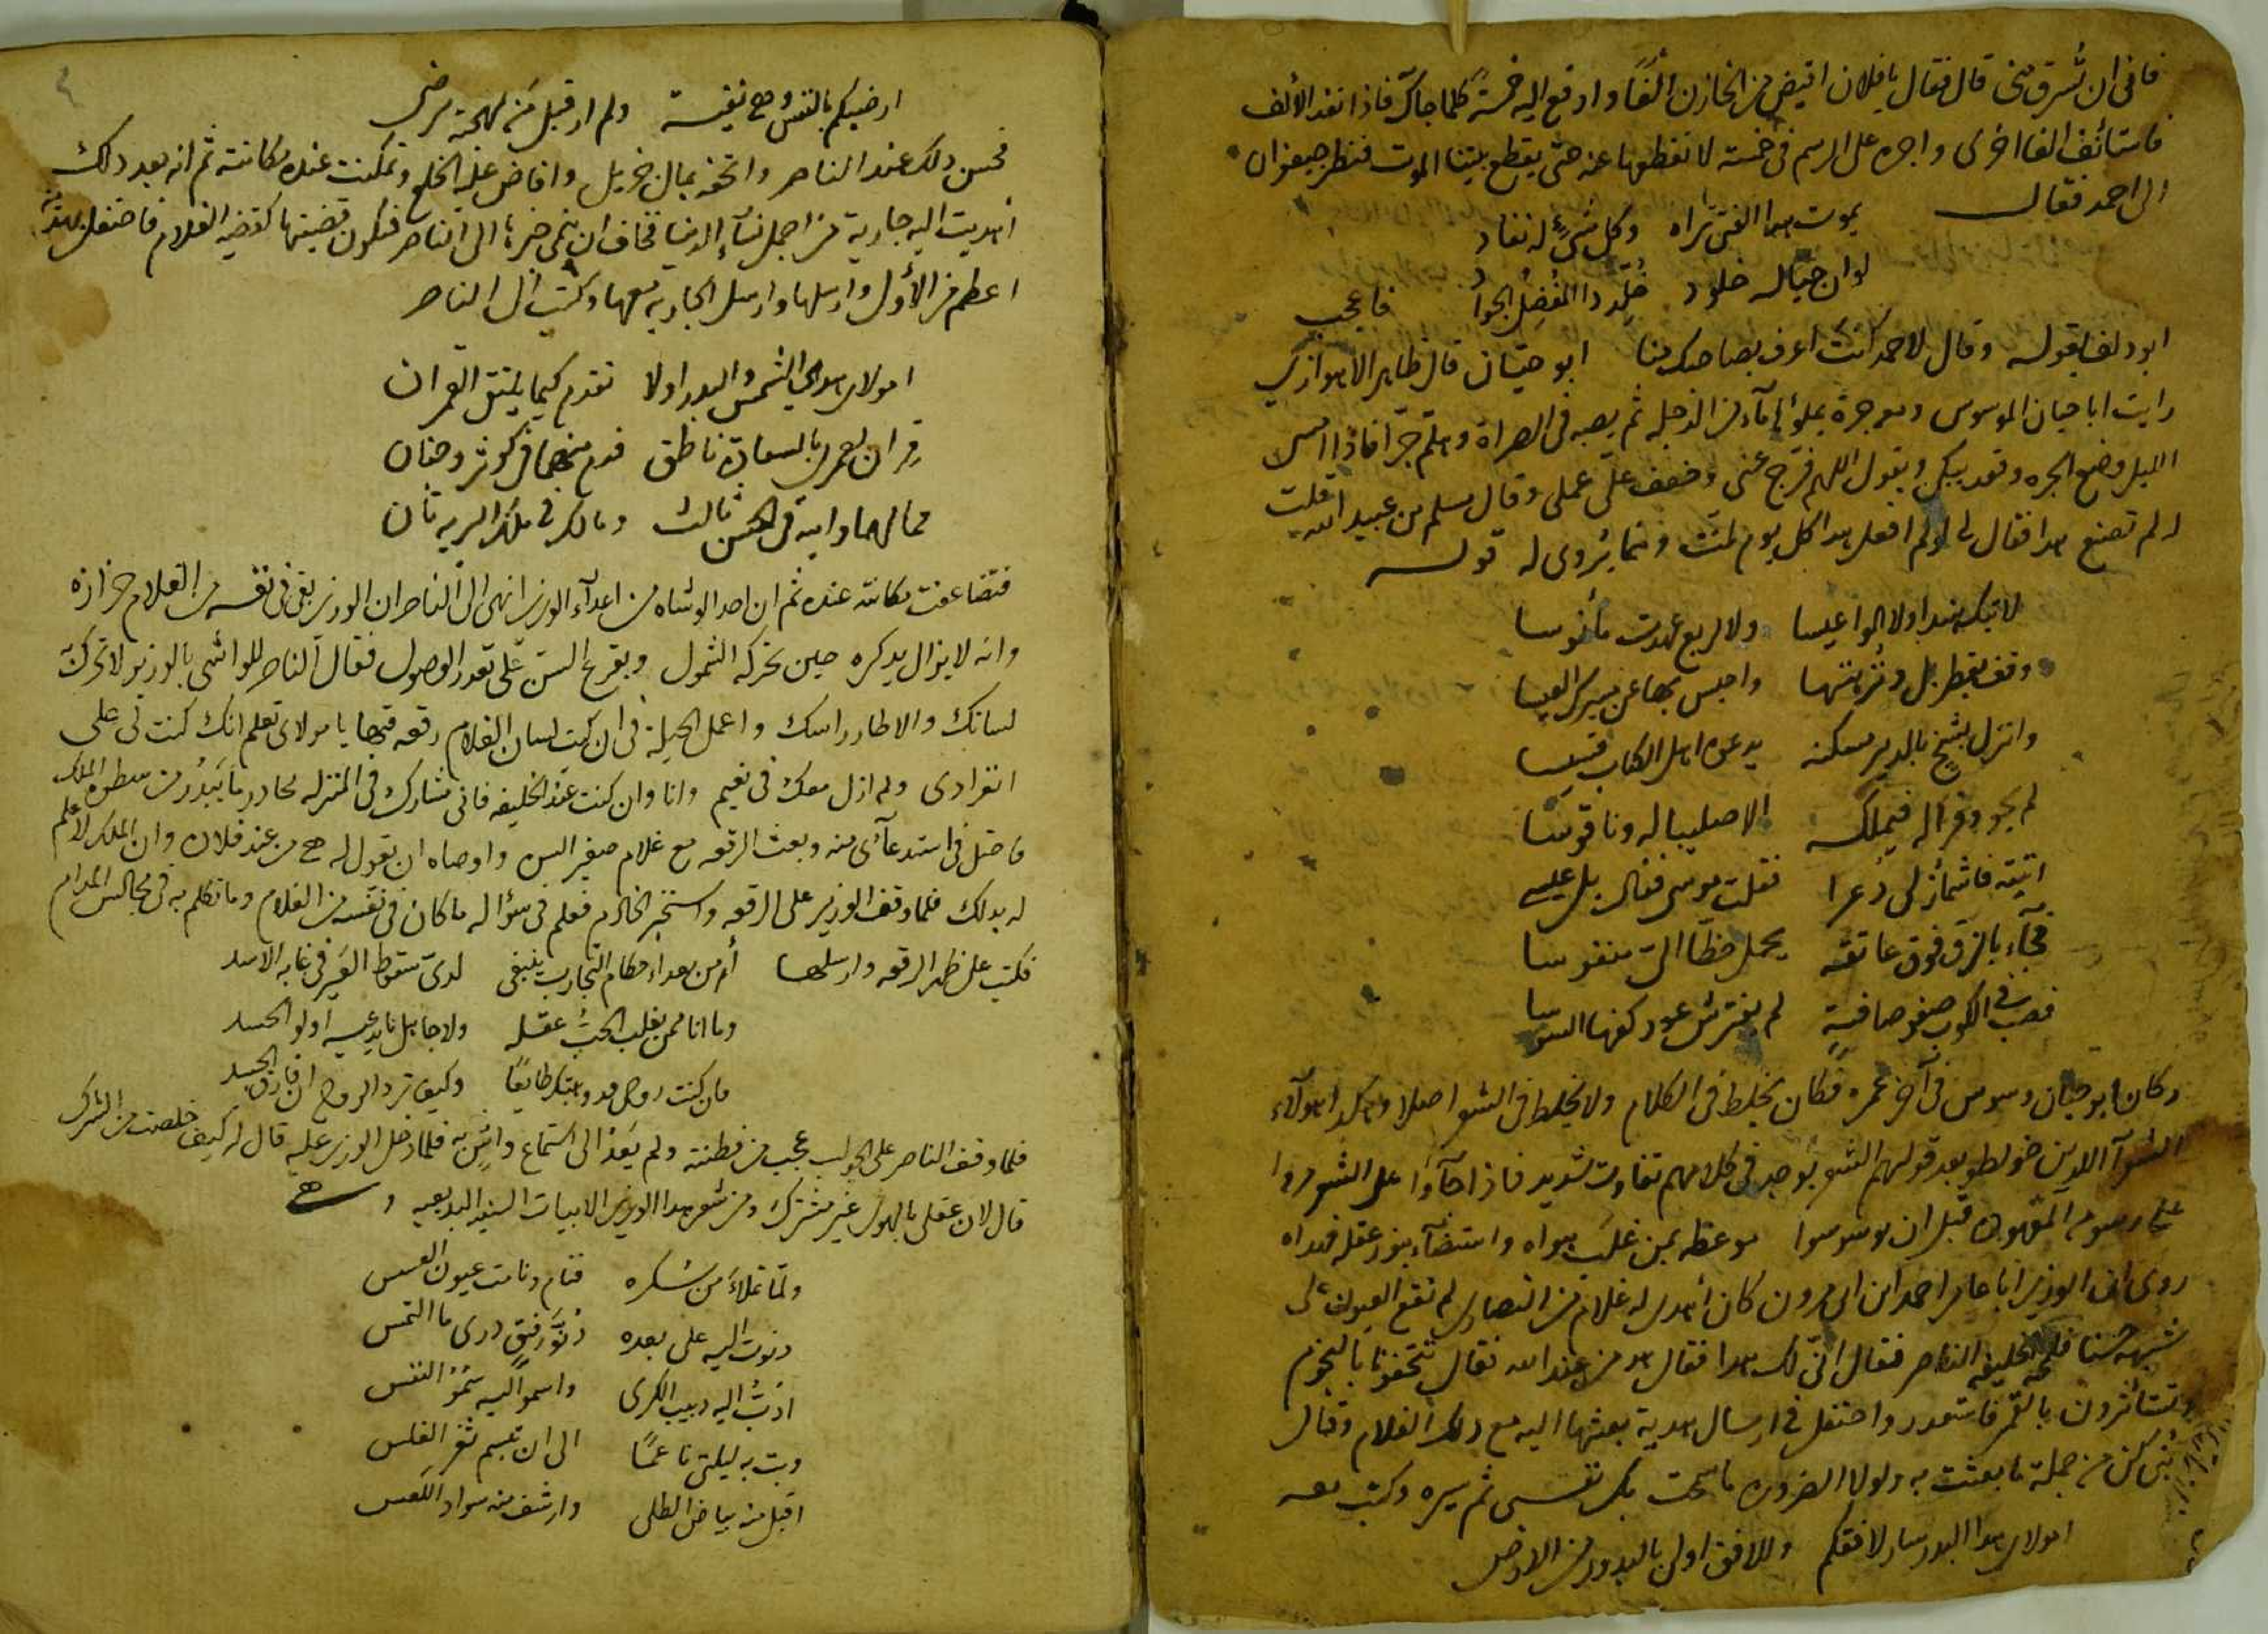 فانى ان تشرق منى قال فقال يا فلان اقبض من الخازن الفًا وادفع اليه خمسة كلما جاك فاذا نفد الألف
فاستأنف الفا اخرى واجره على الرسم فى خمسة لا تقطعها عنه حتى يقطع بيننا الموت فنظر جعيفران
الى احمد فقال
يموت هدا الفتى تراه وكل شىء له نفاد
لو ان حيا له خلود خُلّد دا المُفضِل الجوادُ فاعجب
ابو دلف بقوله وقال لاحمد انت اعرف بصاحبك منا ابو حيّان قال طاهر الاهوازى
رايت ابا حيان الموسوس ومعه جرة يملؤها مآء من الدجله ثم يصبه فى الصراة وهلم جرّا فاذا امسى
الليل وضع الجره وقعد يبكى ويقول اللهم فرّج عنى وخفف علىّ عملى وقال مسلم بن عبيد الله قلت
لم تصنع هدا فقال لى لو لم افعل هدا كل يوم لمتّ ومما يُروى له قوله
لا تبك هندا ولا المواعيسا ولا لربع عهدت مأنوسا
وقف بقطربل ونُزهتها واحبس بها عن مسيرك العيسا
وانزل بشيخ بالدير مسكنه يدعوه اهل الكتاب قسيسا
لم يحو وفر اله فيملك الا صليبا له وناقوسا
اتيته فاشمأز لى ذعرا فقلت موسى فقال بل عيسى
فجآء بالزق فوق عاتقه يحمل حظًا الىّ منفوسا
فصبّ فى الكوب صفو صافيةٍ لم يفترش عود كفها السوسا
وكان ابو حيان وسوس فى آخر عمره فكان يخلط فى الكلام ولا يخلط فى الشعر اصلا وهكدا هولآء
الشعرآ الدين خولطو بعد قولهم الشعر يوجد فى كلامهم تفاوت شديد فاذا جآؤا على الشعر مروا
على رسومه المعهودة قبل ان يوسوسوا موعظه بمن غلب هواه واستضآء بنور عقله فهداه
روى ان الوزير ابا عامر احمد ابن ابى مروان كان أهدى له غلام من النصارى لم تقع العيون على
شبهه حسنا فلمحه الخليفه الناصر فقال انّى لك هدا فقال هو من عند الله فقال تتحفونا بالنجوم
وتستأثرون بالقمر فاستعدر واحتفل فى ارسال هدية بعثها اليه مع دلك الغلام وقال
بُنى كن من جملة ما بعثت به ولولا الضروره ما سمحت بك نفسى ثم سيره وكتب معه
امولاى هدا البدر سار لافقكم وللافق اولى بالبدور من الارض
ارضيكم بالنفس وهى نفيسة ولم ار قبلى من بمهجته يرضى
فحسن دلك عند الناصر واتحفه بمال جزيل وافاض عليه الخلع وتمكنت عنده مكانته ثم انه بعد دلك
أهديت اليه جارية من اجمل نسآء الدنيا فخاف ان ينمى خبرها الى الناصر فتكون قضيتها كقضيه الغلام فاحتفل بهدية
اعظم من الأولى وارسلها وارسل الجاريه معها وكتب الى الناصر
امولاى هدى الشمس والبدر اولا تقدم كيما يلتقى القمران
قِران لعمرى بالسعادة ناطق فدم منهما فى كوثر وجنان
فما لهما والله فى الحسن ثالث ومالك فى ملك البريه ثان
فتضاعفت مكانته عنده ثم ان احد الوشاه من اعدآء الوزير انهى الى الناصر ان الوزير بقى فى نفسه من الغلام حزازه
وانه لا يزال يدكره حين تحركه الشمول ويقرع السن على تعدر الوصول فقال الناصر للواشى بالوزير لا تحرك به
لسانك والا طار راسك واعمل الحيلة فى ان كتب لسان الغلام رقعه فيها يا مولاى تعلم انك كنت لى على
انفرادى ولم ازل معك فى نعيم وانا وان كنت عند الخليفه فانى مشارك فى المنزله محادر ما يَبدُر من سطوه الملك
فاحتل فى استدعآئى منه وبعث الرقعه مع غلام صغير السن واوصاه ان يقول له هى من عند فلان وان الملك لا علم
له بدلك فلما وقف الوزير على الرقعه واستخبر الخادم فعلم فى سؤاله ما كان فى نفسه من الغلام وما تكلم به فى مجالس المدام
فكتب على ظهر الرقعه وارسلها أمن بعد احكام التجارب ينبغى لدىّ سقوط العَير فى غابه الاسد
وما انا ممن يغلب الحبُّ عقله ولا جاهل ما يدعيه اولو الحسد
فان كنت روحى قد وهبتك طايعًا وكيف ترد الروح ان فارق الجسد
فلما وقف الناصر على الجواب عجب من فطنته ولم يَعُدْ الى استماع واشٍ به فلما دخل الوزير عليه قال له كيف خلصت من الشرك
قال لان عقلى بالهوى غير مشترك ومن شعر هدا الوزير الابيات السنيه البديعيه وهى
ولمّا تملّأ من سكره فنام ونامت عيون العسس
دنوت اليه على بعده دُنوَّ رفيق درى ما التمس
ادبُّ اليه دبيب الكرى واسمو اليه سُمُوّ النفس
وبت به ليلتى ناعمًا الى ان تبسم ثغر الغلس
اقبل منه بياض الطلى وارشف منه سواد اللعس